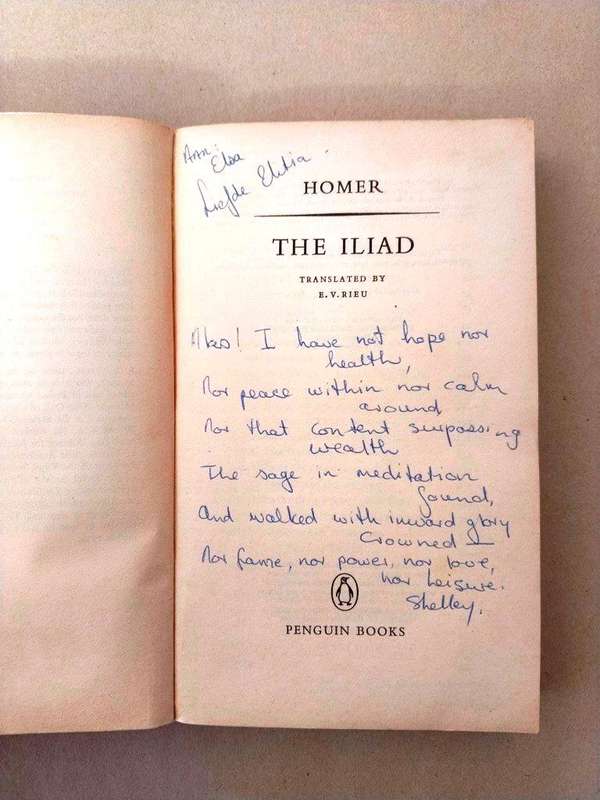 Aan:
Elsa
Liefde Elitia.
HOMER
THE ILIAD
TRANSLATED BY
E. V. RIEU
Alas! I have not hope nor
health,
Nor peace within nor calm
around
Nor that content surpassing
wealth
The sage in meditation
found,
And walked with inward glory
crowned —
Nor fame, nor power, nor love,
nor leisure.
Shelley.
PENGUIN BOOKS